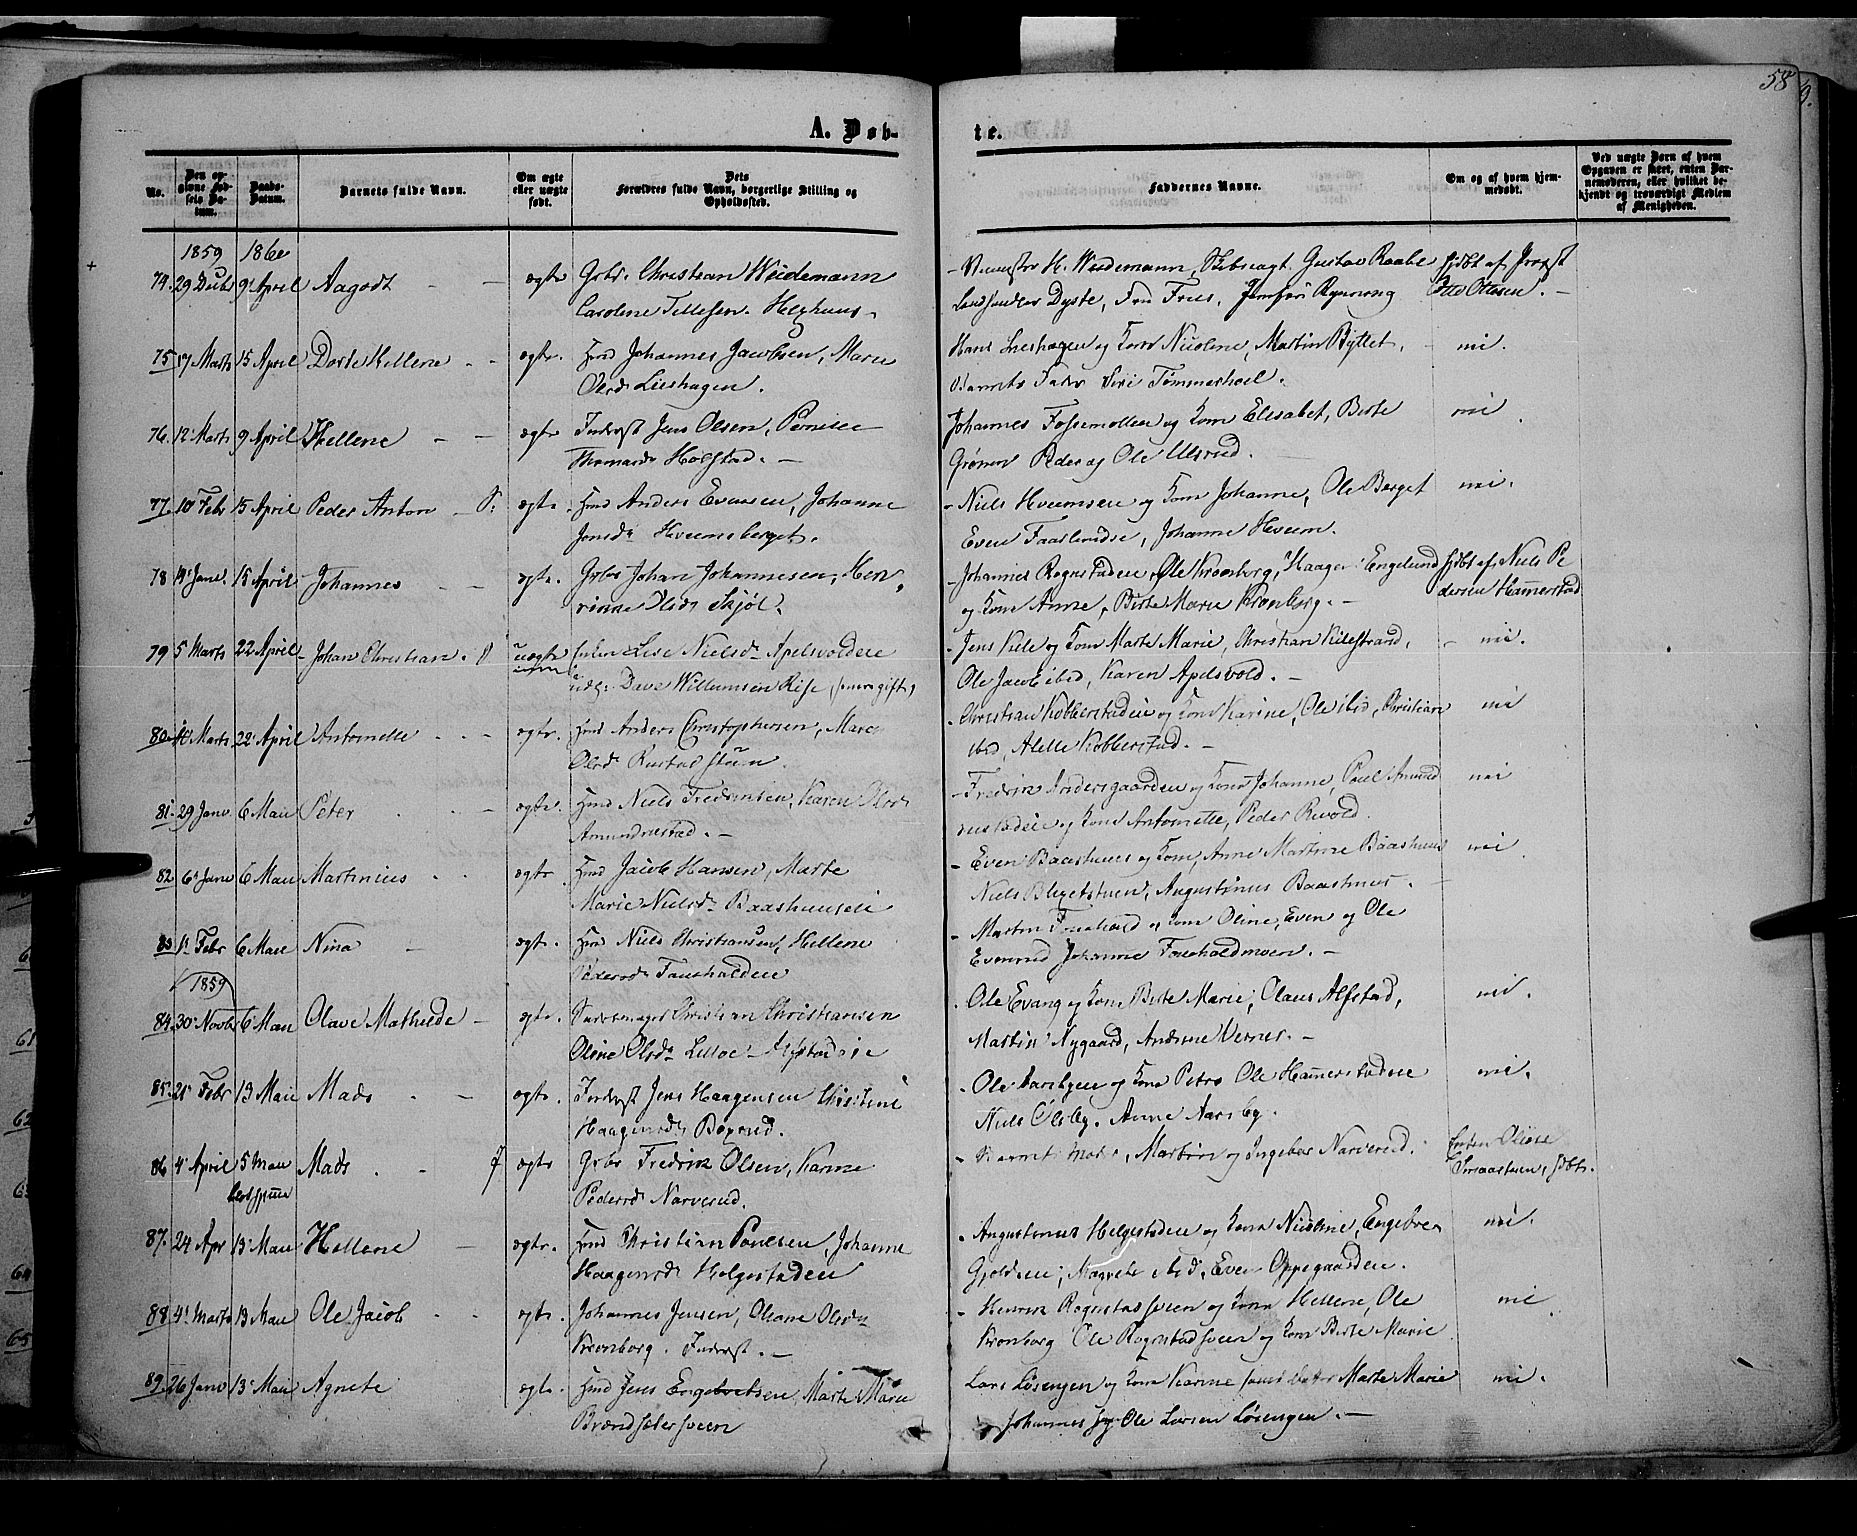 58
9.
A. Døb-
te.
No.
Den opgivne Fødsels Datum.
Daabs-Datum.
Barnets fulde Navn.
Om ægte eller uægte født.
Dets Forældres fulde Navn, borgerlige Stilling og Opholdssted.
Faddernes Navne.
Om og af hvem hjemmedøbt.
Ved uægte Børn af hvem Opgaven er skeet, enten Barnemoderen, eller hvilket bekjendt og troværdigt Medlem af Menigheden.
1859 1860
74. 29 Decbr 9 April Aagodt - - ægte Gbr. Christian Weidemann
Carolene Tellefsen. Helghuus.
H. Weidemann, Gustav Raabe
Dyste, Fru Friis, Jomfru Rynning
hjdbt af Provst
Otto Ottesen. -
75 17 Marts 15 April Dorte Hellene - - ægte. Hmd Johannes Jacobsen, Maren
Olsd. Lieshagen.
Hans Lieshagen og Kone Nicoline, Martin Byttet,
Barnets Fader Siri Tømmerhoel.
nei.
76. 12 Marts 9 April Hellene - - ægte Inderst Jens Olsen, Pernille
Thomasd. Holstad. -
Johannes Fossemøllen og Kone Elisabet, Berte
Grønen Peder og Ole Ulsrud.
nei
77. 10 Febr 15 April Peder Anton - ægte. Hmd Anders Evensen, Johanne
Jensd. Hveemsberget.
Niels Hveemseie og Kone Johanne, Ole Berget
Even Faaslundse, Johanne Hveem.
nei.
78 19 Janv. 15 April Johannes - - ægte. Gbr Johan Johannesen, Hen-
rikke Olsd. Skjøl.
Johannes Rognstadeie, Ole Kronborg, Haagen Engelund
og Kone Anne, Berte Marie Kronborg. -
hjdbt af Niels Pe
dersen Hammerstad
79 5 Marts 22 April Johan Christian. uægte Lise Nielsd. Apelsvoldeie
Dave Willumsen Rise,
Jens Kile og Kone Marte Marie, Christian Kilestrand,
Ole Jacob ibid, Karen Apelsvold. -
nei.
80. Marts 22 April Antonette - - ægte. Hmd Anders Christophersen, Maren
Olsd. Rustadstuen.
Christian Kobberstadeie og Kone Karine, Ole ibid, Christian
ibid, Alette Kobberstad. -
nei
81. 29 Janv 6 Mai Peter - ægte. Hmd Niels Fredriksen, Karen Olsd.
Amundrustad. -
Fredrik Andersgaarden og Kone Johanne, Poul Amund
rustadeie og Kone Antonette, Peder Rivold.
nei
82 6 Janv 6 Mai Martinius - - ægte Hmd Jacob Hansen, Marte
Marie Nielsd. Baashuuseie
Even Baashuus og Kone, Anne Martine Baashuus
Niels Blegetstuen, Augustinus Baashuus.
nei
83 1 Febr 6 Mai Nina - ægte. Hmd Niels Christiansen, Hellene
Pedersd. Fauchaldeie
Martin og Kone Oline, Even og Ole
Evenrud Johanne Fauchaldmoen. -
1859
84. 30 Novbr 6 Mai Olave Mathilde - ægte. Christian Christiansen
Oline Olsd. Lilloe - Alfstadeie
Ole Evang og Kone Berte Marie, Claus Alfstad,
Martin Nygaard, Andrine Verner. -
nei.
85. 21 Febr 13 Mai Mads - - ægte. Inderst Jens Haagensen Christine
Haagensd. Bøxrud.
Ole og Kone Petra Ole Hammerstadeie
Niels Ølsby. Anne Aarsby.
nei.
86 4 April 5 Mai Mads. - ægte Gbr Fredrik Olsen, Karine
Pedersd. Narverud.
Barnets Moder, Martin og Ingebor Narverud.
87. 24 Apr 13 Mai Hellene - ægte. Hmd Christian Poulsen, Johanne
Haagensd. Helgestadeie
Augustinus Helgestadeie og Kone Nicoline, Engebre
Gjoldseie, Magnete ibid, Even Oppegaarden.
nei.
88. 4 Marts 13 Mai Ole Jacob - - ægte. Johannes Jensen, Oleane Olsd.
Kronborg. Inderst. -
Henrik Rognstadsveen og Kone Hellene, Ole
Kronborg Ole Rognstadsveen og Kone Berte Marie
nei
89. 26 Janv 13 Mai Agnete ægte. Hmd Jens Engebretsen, Marte Marie
Brændsætersveen
Lars Løsengen og Kone Karine Marte Marie
Johannes og Ole Larsen Løsengen. -
nei.
60
61
62
63
64
65